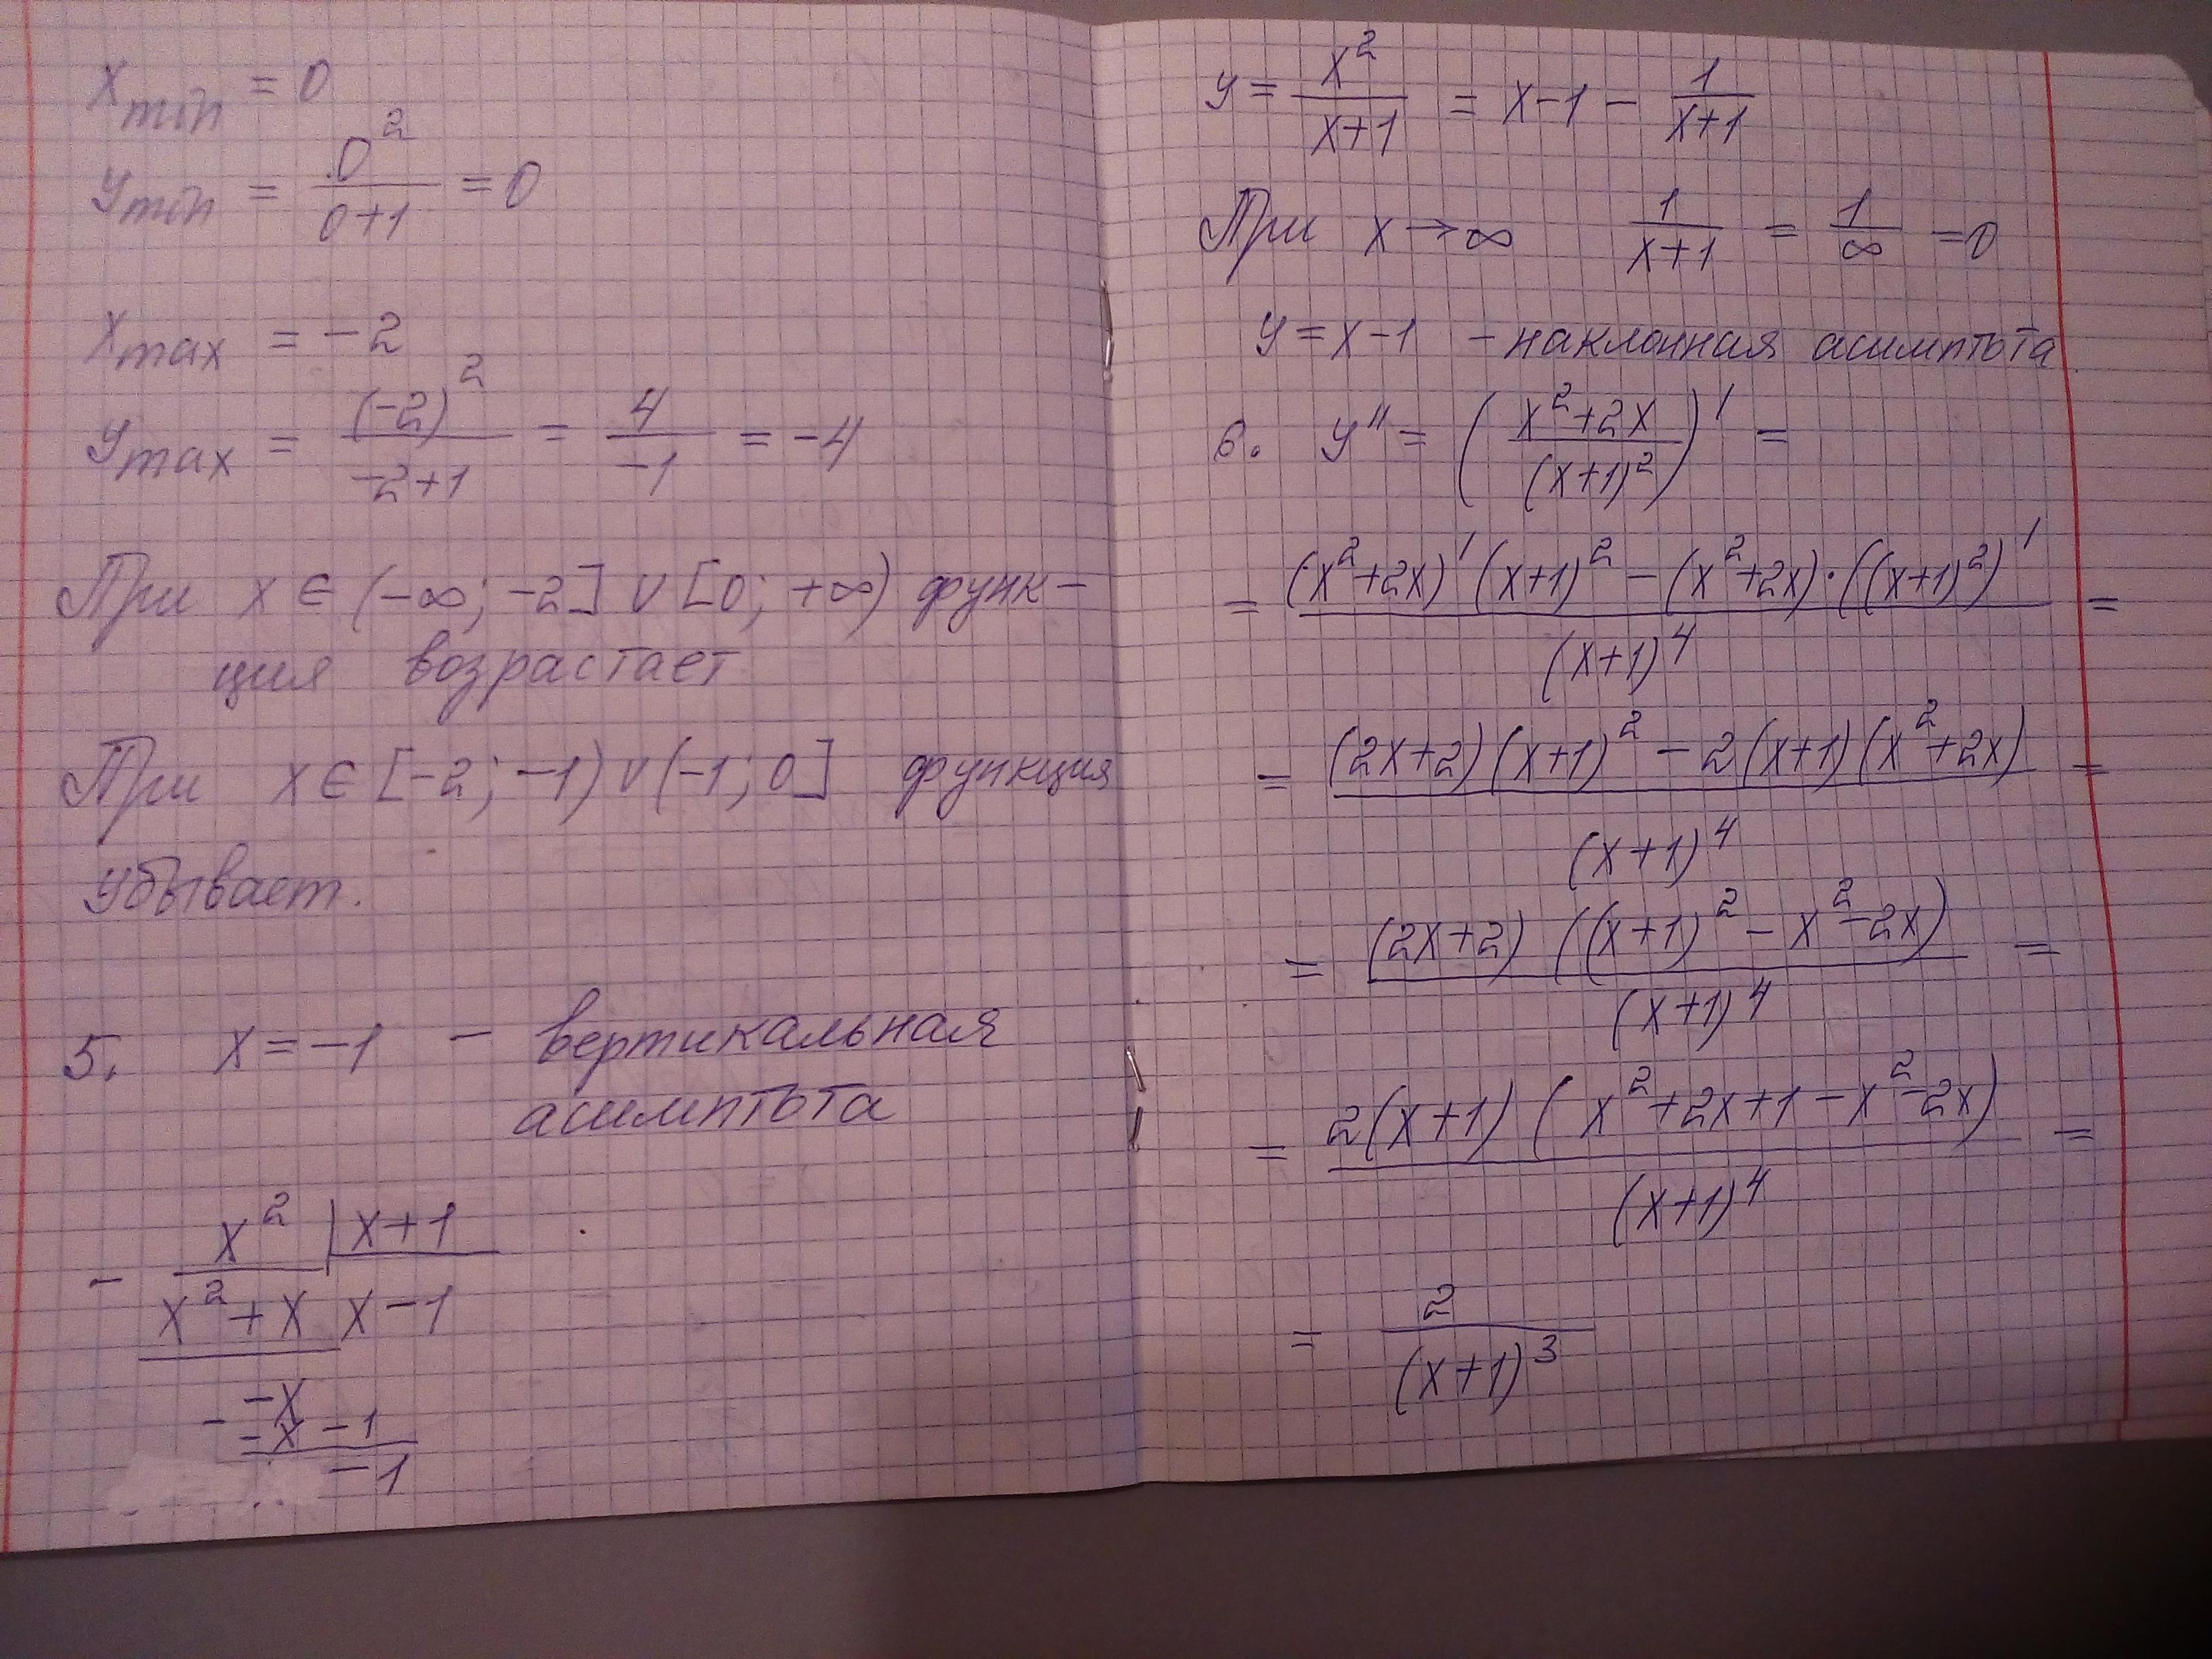 x_min = 0
y_min = 0²/(0+1) = 0
x_max = -2
y_max = (-2)²/(-2+1) = 4/(-1) = -4
При x ∈ (-∞; -2] ∨ [0; +∞) функ-
ция возрастает
При x ∈ [-2; -1) ∨ (-1; 0] функция
убывает.
5. x = -1 - вертикальная
асимптота
- x² | x+1
x²+x x-1
-x
- -x-1
-1
y = x²/(x+1) = x-1 - 1/(x+1)
При x → ∞ 1/(x+1) = 1/∞ = 0
y = x-1 - наклонная асимптота
6. y'' = ((x²+2x)/(x+1)²)' =
= ((x²+2x)'(x+1)² - (x²+2x)·((x+1)²)')/(x+1)⁴ =
= ((2x+2)(x+1)² - 2(x+1)(x²+2x))/(x+1)⁴ =
= ((2x+2)((x+1)² - x² - 2x))/(x+1)⁴ =
= (2(x+1)(x²+2x+1-x²-2x))/(x+1)⁴ =
= 2/(x+1)³